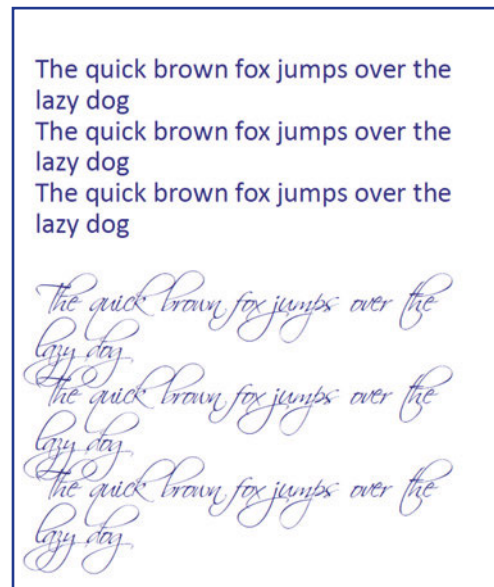 The quick brown fox jumps over the
lazy dog
The quick brown fox jumps over the
lazy dog
The quick brown fox jumps over the
lazy dog
The quick brown fox jumps over the
lazy dog
The quick brown fox jumps over the
lazy dog
The quick brown fox jumps over the
lazy dog